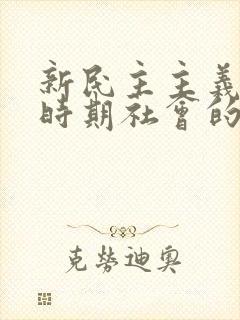 新民主主義
時期社會的
克勞迪奧